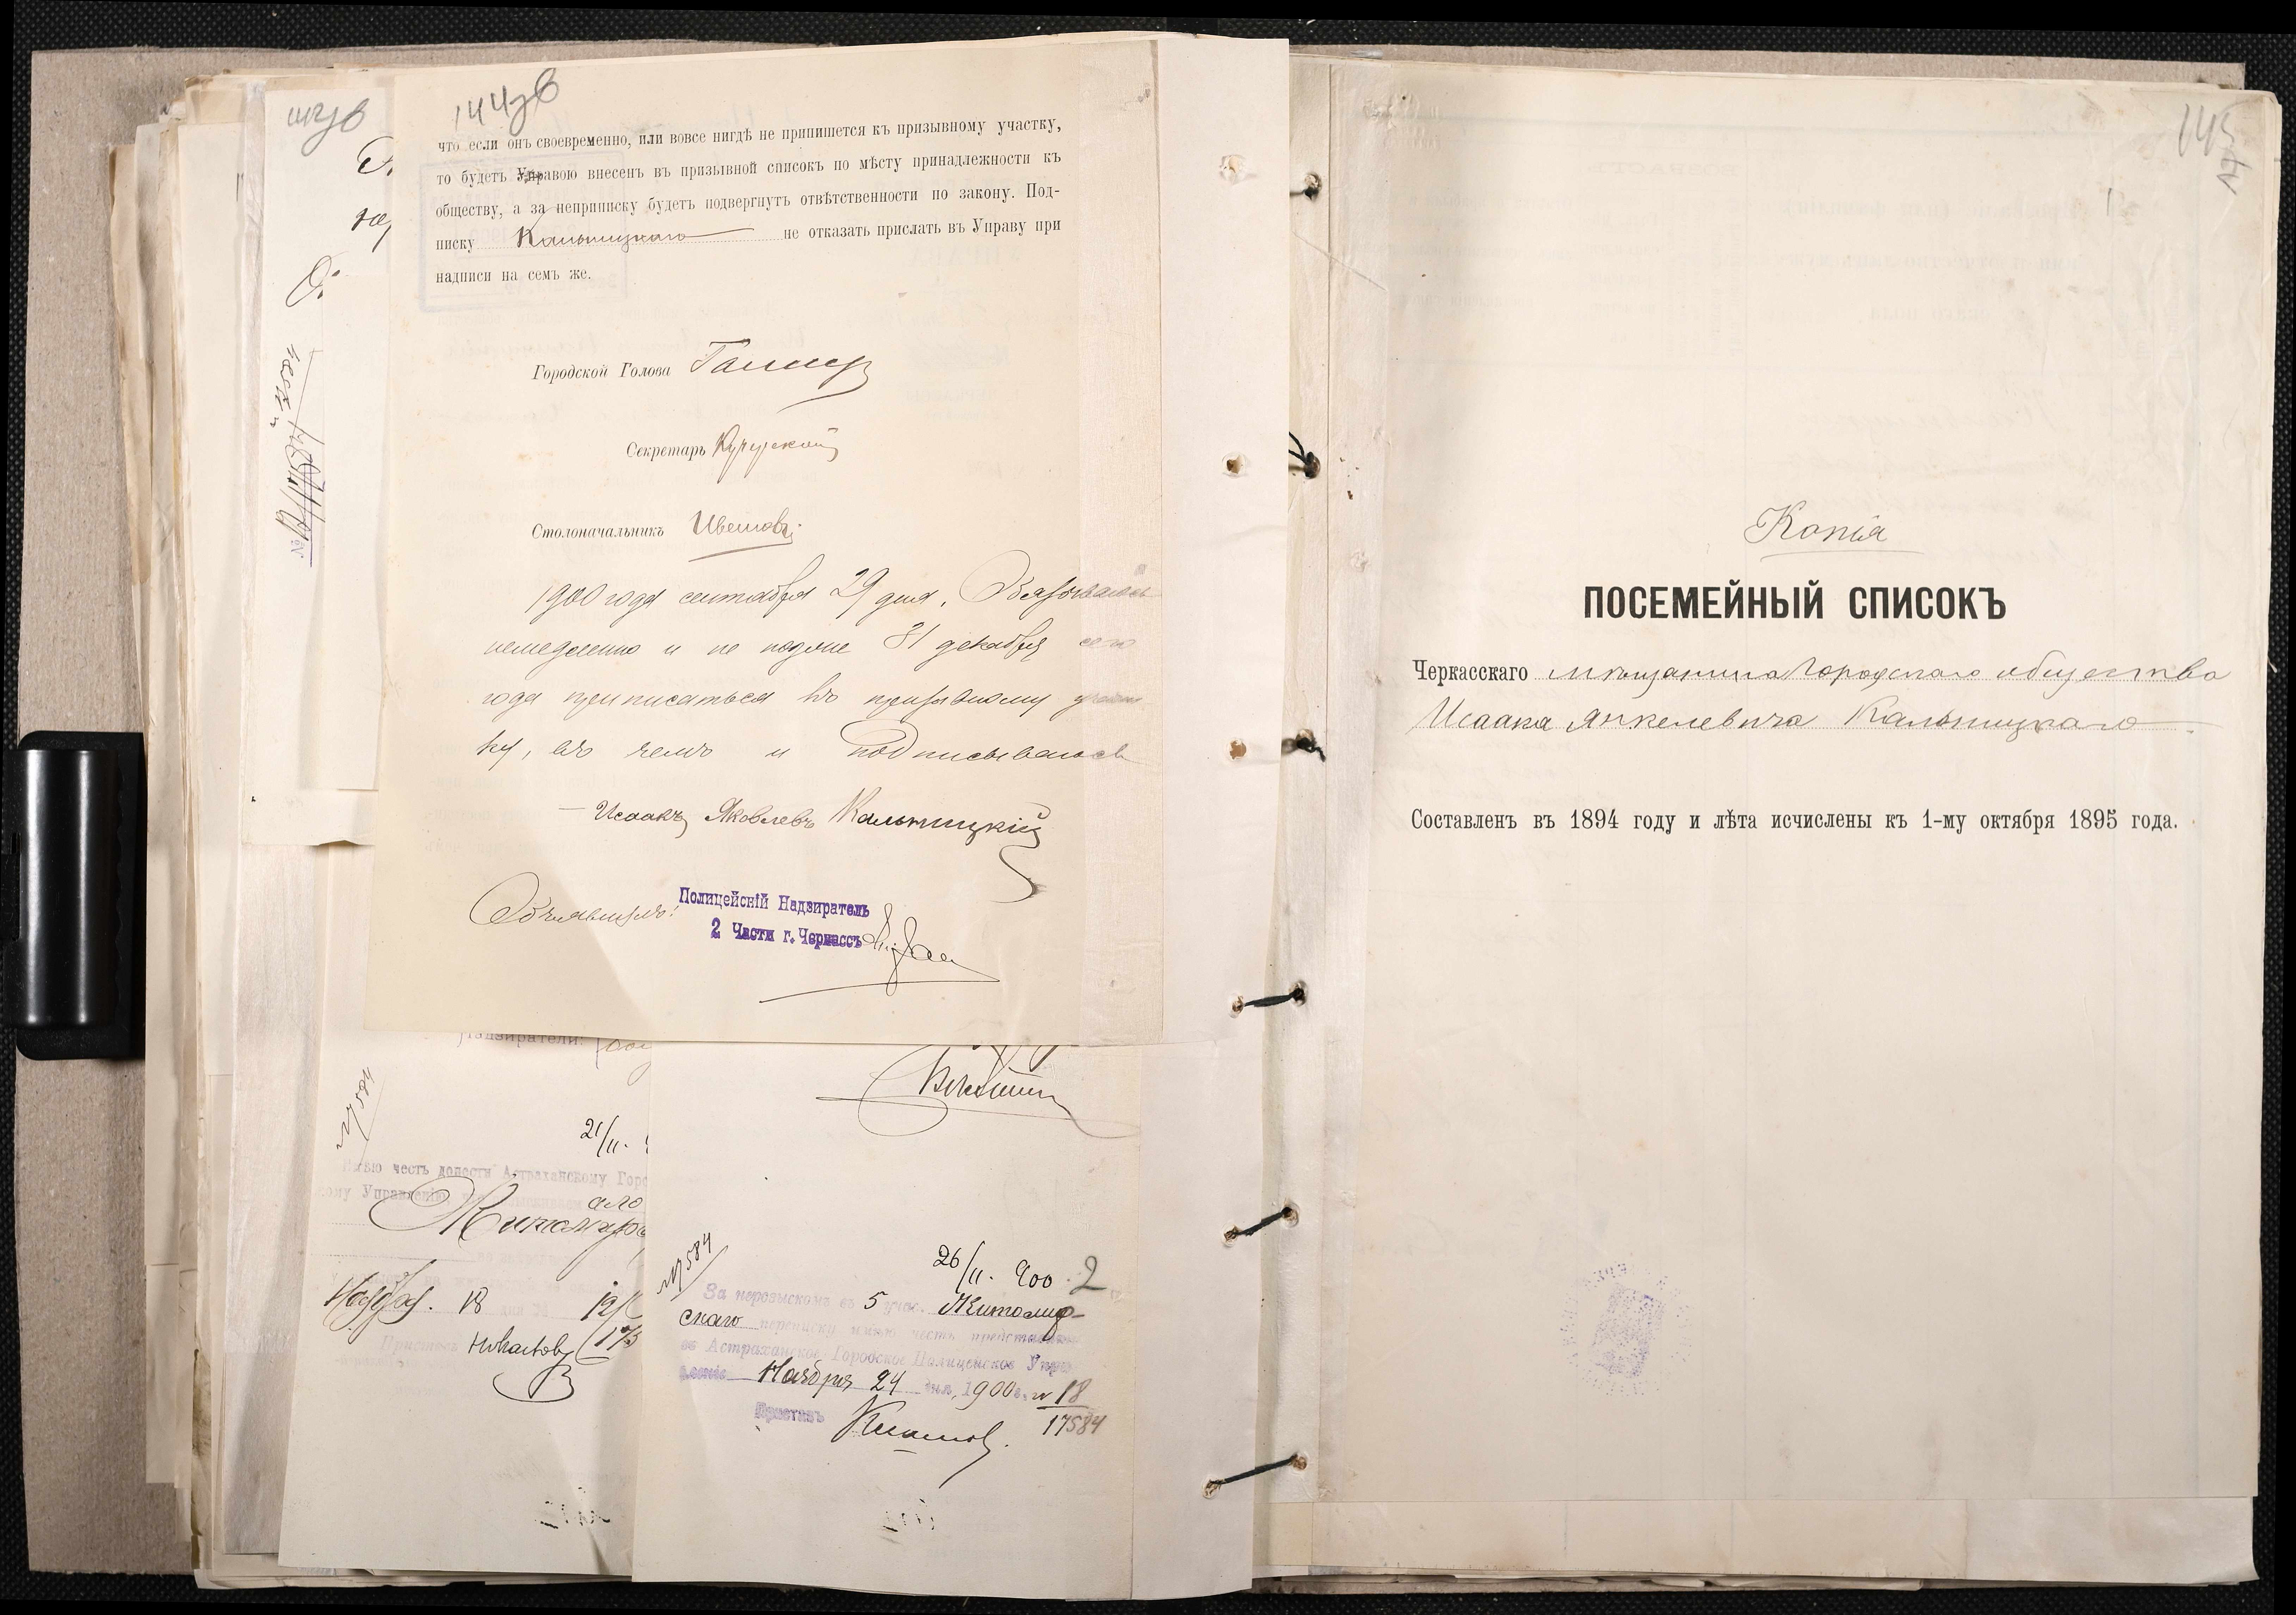 144об
что если онъ своевременно, или вовсе нигдѣ не припишется къ призывному участку,
то будетъ Управою внесенъ въ призывной списокъ по мѣсту принадлежности къ
обществу, а за неприписку будетъ подвергнутъ отвѣтственности по закону. Под-
писку Кальницкаго не отказать прислать въ Управу при
надписи на семъ же.
Городской Голова
Секретарь
Столоначальникъ
1900 года сентября 29 дня, Обязываюсь
немедленно и не позже 31 декабря сего
года приписаться къ призывному участ
ку, въ чемъ и подписываюсь
Исаакъ Яковлевъ Кальницкій
Объявилъ:
Полицейскій Надзиратель
2 Части г. Черкассъ
Надзиратели:
№ 17584
21/11.
Имѣю честь донести Астраханскому Горо
скому Управленію
аго
Житомирск
Ноября. 18
Приставъ
№ 17584
26/11. 900. 2
За нерозыскомъ въ 5 учас. Житомир-
скаго переписку имѣю честь представить
въ Астраханское Городское Полицейское Упра
вленіе Ноября 24 дня, 1900 г. № 18
17584
Приставъ
145
Копія
ПОСЕМЕЙНЫЙ СПИСОКЪ
Черкасскаго мѣщанина Городскаго общества
Исаака Янкелевича Кальницкаго
Составленъ въ 1894 году и лѣта исчислены къ 1-му октября 1895 года.